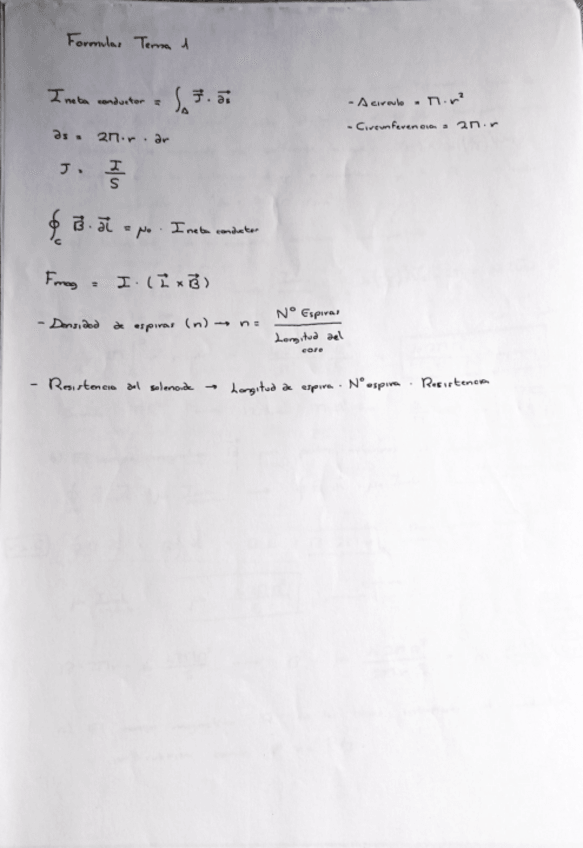 Formulas Tema 1
I neta conductor = ∫_A J⃗ · ∂s⃗
- A circulo = Π · r²
∂s = 2Π · r · ∂r
- Circunferencia = 2Π · r
J = I / S
∮_c B⃗ · ∂L⃗ = μ₀ · I neta conductor
F mag = I · (L⃗ × B⃗)
- Densidad de espiras (n) → n = Nº Espiras / Longitud del
- Resistencia del solenoide → Longitud de espira · Nº espira · Resistencia